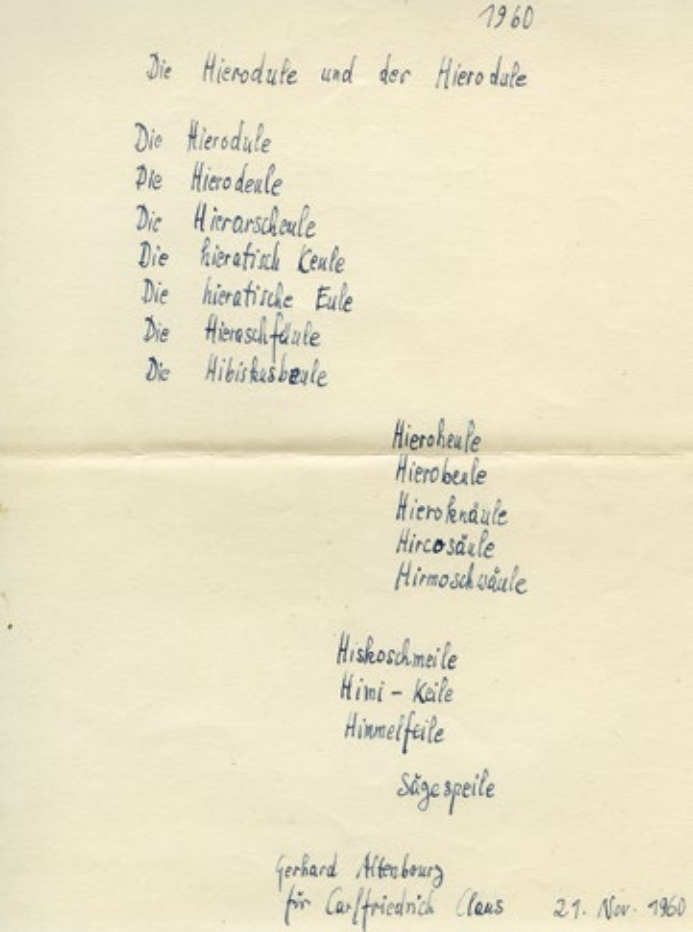 1960
Die Hierodule und der Hierodule
Die Hierodule
Die Hierodeule
Die Hierarscheule
Die hieratisch Keule
Die hieratische Eule
Die Hieraschfäule
Die Hibiskusbeule
Hieroheule
Hierobeule
Hieroknäule
Hircosäule
Hirmoschwäule
Hiskoschmeile
Himi - Keile
Himmelfeile
Sägespeile
Gerhard Altenbourg
für Carlfriedrich Claus 21. Nov. 1960